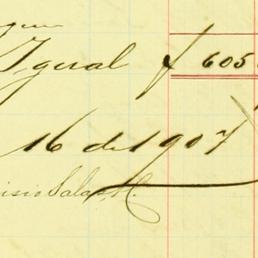 Igual $ 605
16 de 1907
isio Salas H.